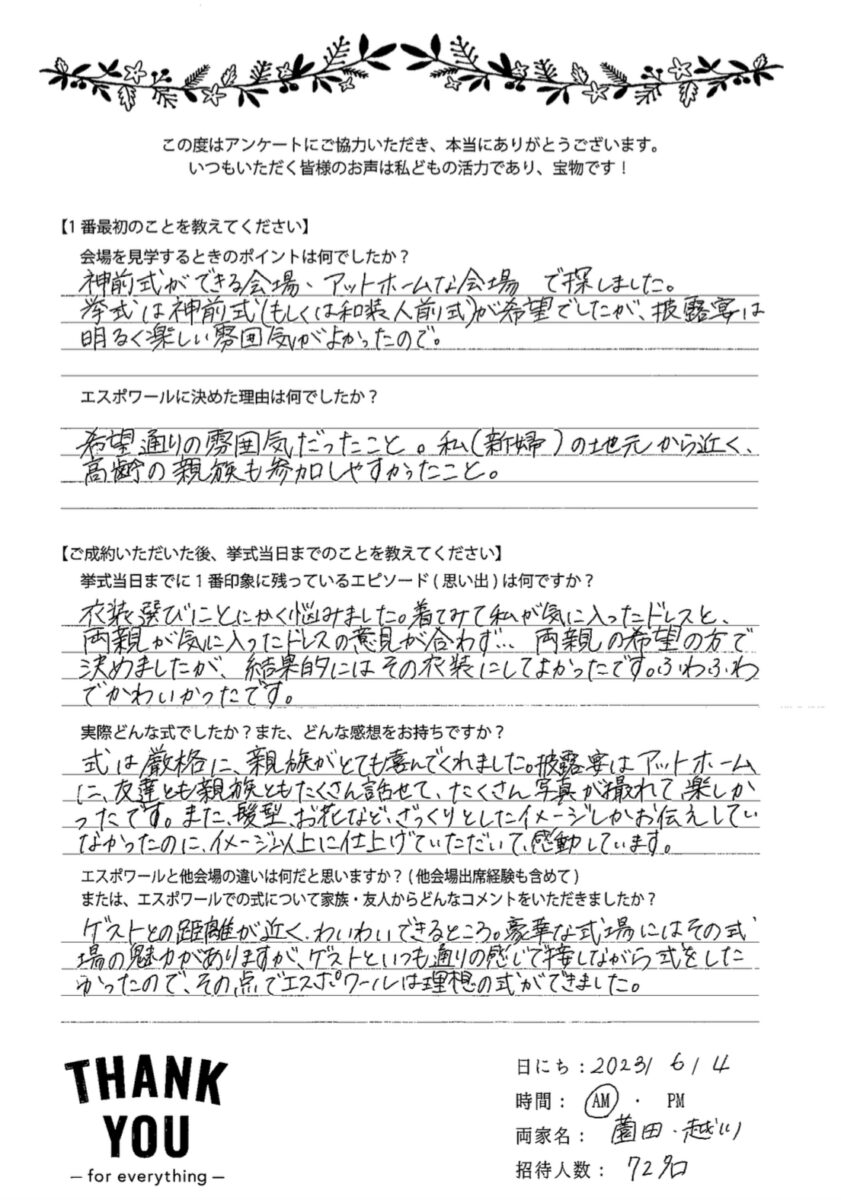 この度はアンケートにご協力いただき、本当にありがとうございます。
いつもいただく皆様のお声は私どもの活力であり、宝物です！
【1番最初のことを教えてください】
会場を見学するときのポイントは何でしたか？
神前式ができる会場、アットホームな会場 で探しました。
挙式は神前式(もしくは和装人前式)が希望でしたが、披露宴は
明るく楽しい雰囲気がよかったので。
エスポワールに決めた理由は何でしたか？
希望通りの雰囲気だったこと。私(新婦)の地元から近く、
高齢の親族も参加しやすかったこと。
【ご成約いただいた後、挙式当日までのことを教えてください】
挙式当日までに1番印象に残っているエピソード(思い出)は何ですか？
衣装選びにとにかく悩みました。着てみて私が気に入ったドレスと、
両親が気に入ったドレスの意見が合わず… 両親の希望の方で
決めましたが、結果的にはその衣装にしてよかったです。ふわふわ
でかわいかったです。
実際どんな式でしたか？また、どんな感想をお持ちですか？
式は厳格に、親族がとても喜んでくれました。披露宴はアットホーム
に、友達とも親族ともたくさん話せて、たくさん写真が撮れて楽しか
ったです。また、髪型、お花など、ざっくりとしたイメージしかお伝えしてい
なかったのに、イメージ以上に仕上げていただいて、感動しています。
エスポワールと他会場の違いは何だと思いますか？(他会場出席経験も含めて)
または、エスポワールでの式について家族・友人からどんなコメントをいただきましたか？
ゲストとの距離が近く、わいわいできるところ。豪華な式場にはその式
場の魅力がありますが、ゲストといつも通りの感じで接しながら式をした
かったので、その点でエスポワールは理想の式ができました。
THANK
YOU
– for everything –
日にち：2023/ 6 / 4
時間： AM ・ PM
両家名： 薗田・越川
招待人数： 72名